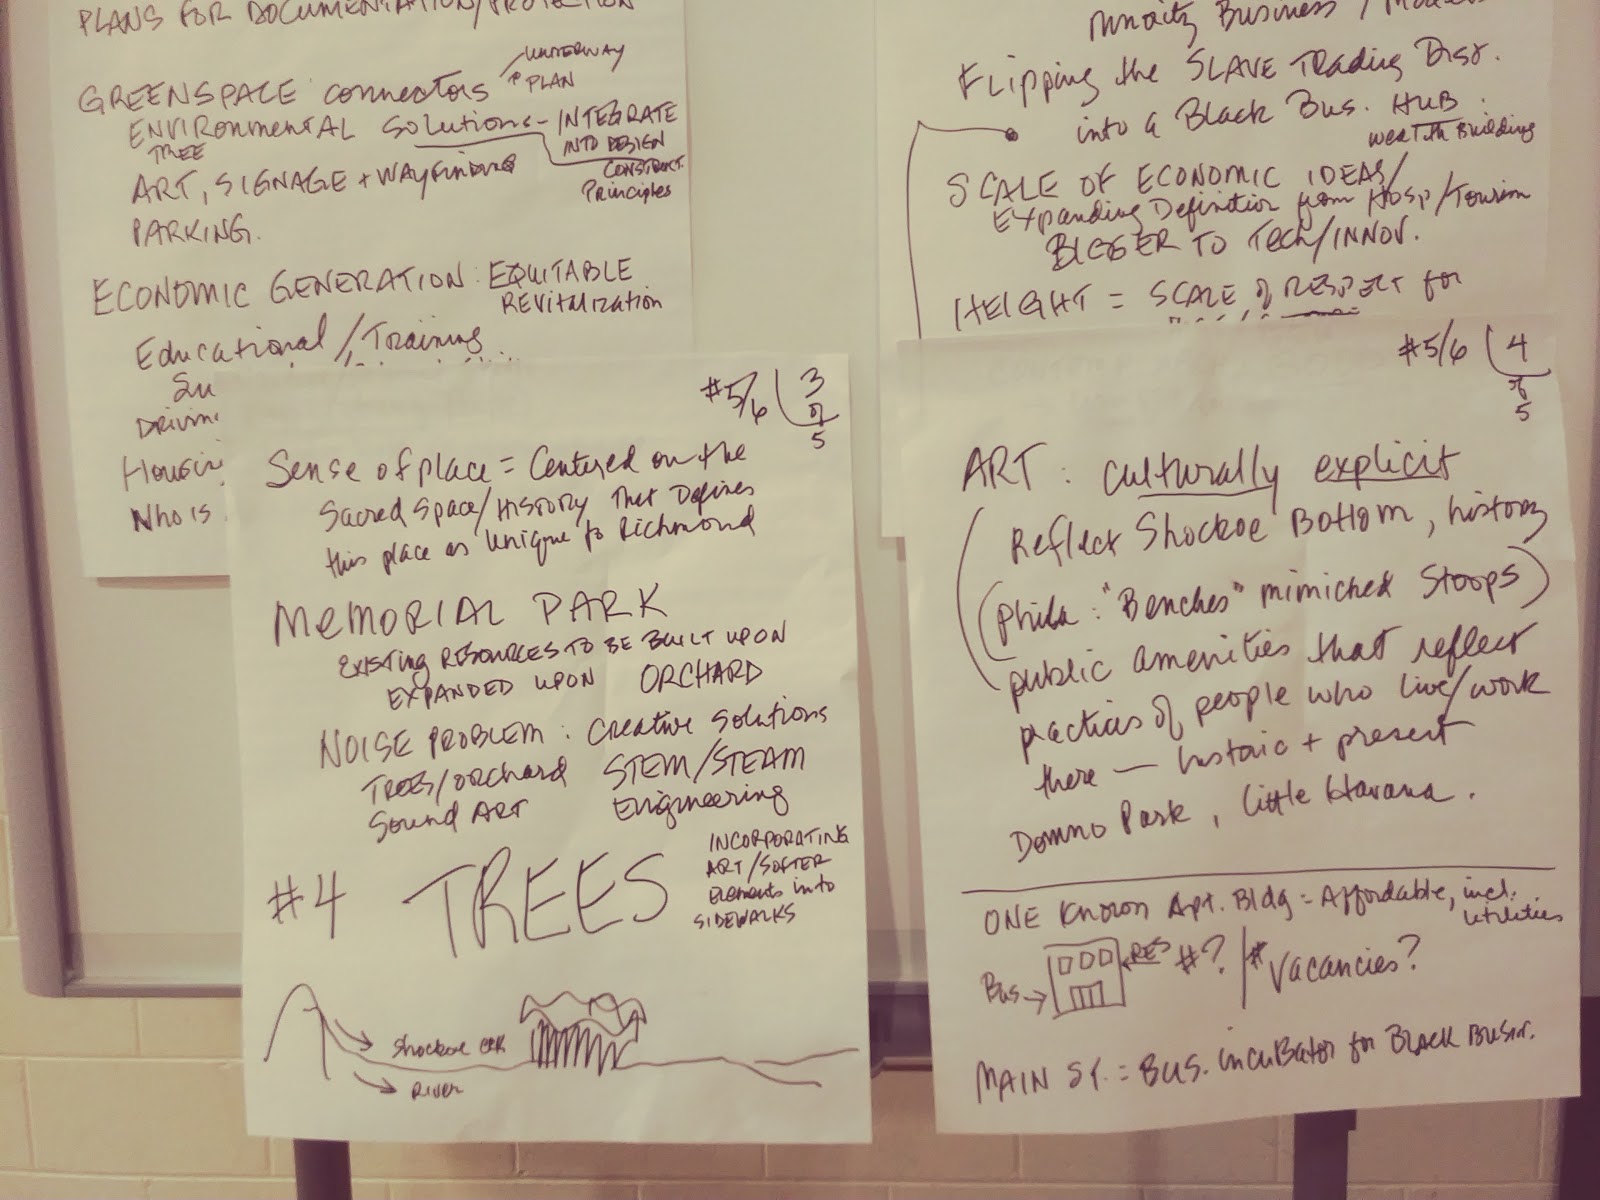 PLANS FOR DOCUMENTATION/PROTECTION
GREENSPACE connectors
UNDERWAY
PLAN
ENVIRONMENTAL solutions - INTEGRATE
INTO DESIGN
CONSTRUCT.
Principles
TREE
ART, SIGNAGE + WAYFINDING
PARKING.
ECONOMIC GENERATION: EQUITABLE
REVitalization
Educational / Training
Housing
Who is
Minority Business /
Flipping the SLAVE Trading Dist.
into a Black Bus. HUB
wealth Building
SCALE OF ECONOMIC IDEAS/
Expanding Definition from Hosp/Tourism
BIGGER TO Tech/INNOV.
HEIGHT = SCALE of RESPECT for
#5/6 3 of 5
Sense of place = Centered on the
Sacred Space/History That Defines
this place as unique to Richmond
MEMORIAL PARK
EXISTING RESOURCES TO BE BUILT UPON
EXPANDED UPON ORCHARD
NOISE PROBLEM: Creative Solutions
TREES/ORCHARD STEM/STEAM
Sound ART Engineering
#4 TREES
INCORPORATING
ART/SOFTER
Elements into
SIDEWALKS
Shockoe
River
#5/6 4 of 5
ART: culturally explicit
Reflect Shockoe Bottom, history
(Phila: "Benches" mimiched Stoops)
public amenities that reflect
practices of people who live/work
there — historic + present
Domino Park, Little Havana.
ONE Known Apt. Bldg = Affordable, incl.
utilities
Bus. → ← RES #? / # Vacancies?
MAIN ST. = BUS. incuBator for Black Busin.